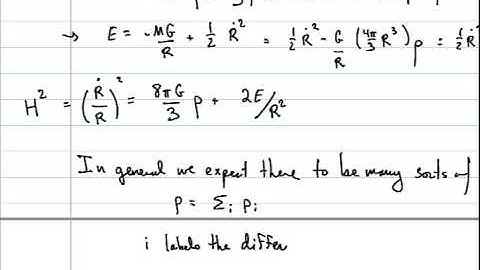 → E = -MG/R + 1/2 Ṙ² = 1/2 Ṙ² - G/R (4π/3 R³) ρ = 1/2 Ṙ
H² = (Ṙ/R)² = 8πG/3 ρ + 2E/R²
In general we expect there to be many sorts of
ρ = Σᵢ ρᵢ
i labels the differ